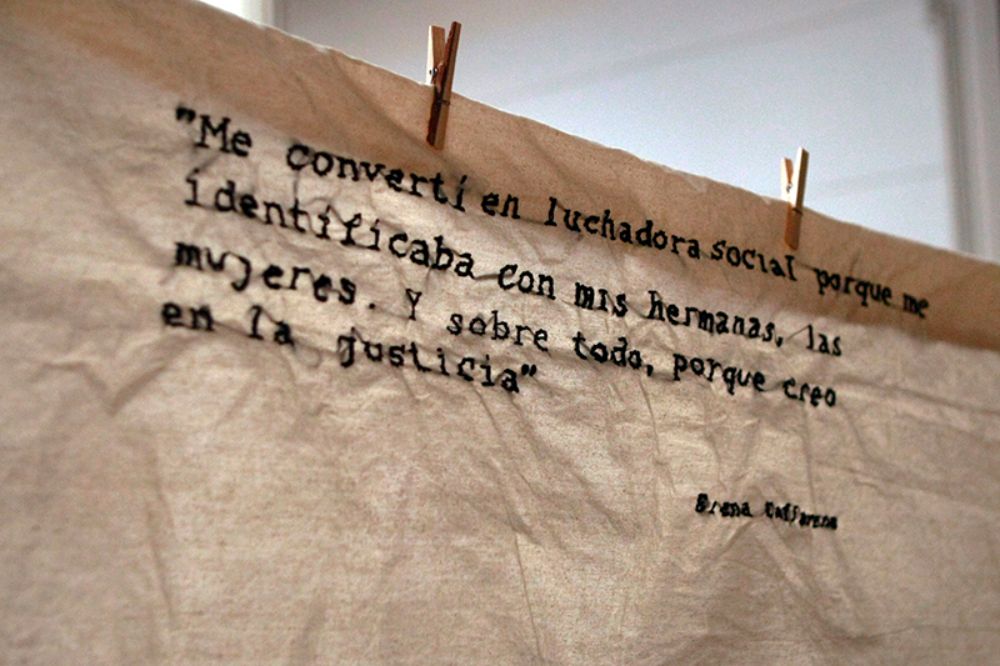 "Me convertí en luchadora social porque me
identificaba con mis hermanas, las
mujeres. Y sobre todo, porque creo
en la justicia"
Elena Caffarena